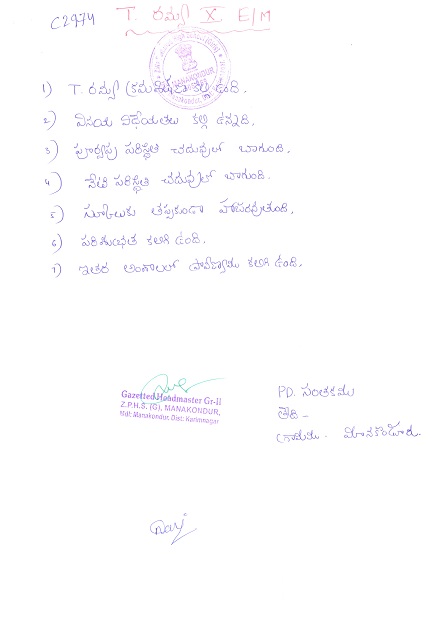 C2974
T. రమ్య X E/M
MANAKONDUR
1) T. రమ్య క్రమశిక్షణ కల్గి ఉంది.
2) వినయ విధేయతలు కల్గి ఉన్నది.
3) పూర్వపు పరిస్థితి చదువులో బాగుంది.
4) నేటి పరిస్థితి చదువులో బాగుంది.
5) స్కూలుకు తప్పకుండా హాజరవుతుంది.
6) పరిశుభ్రత కలిగి ఉంది.
7) ఇతర అంశాలలో ప్రావీణ్యము కలిగి ఉంది.
Gazetted Headmaster Gr-II
Z.P.H.S. (G). MANAKONDUR,
Mdl; Manakondur, Dist: Karimnagar
PD. సంతకము
తేది -
గ్రామము - మానకొండూరు.